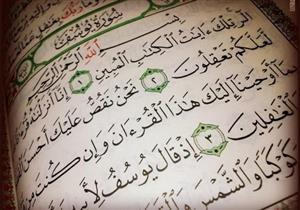 سورة يوسف
بسم الله الرحمن الرحيم
الر تلك ءايت الكتب المبين ١ إنا أنزلنه
لعلكم تعقلون ٢ نحن نقص عليك أحسن
بما أوحينا إليك هذا القرءان وإن كنت من
الغفلين ٣ إذ قال يوسف لأبيه
كوكبا والشمس